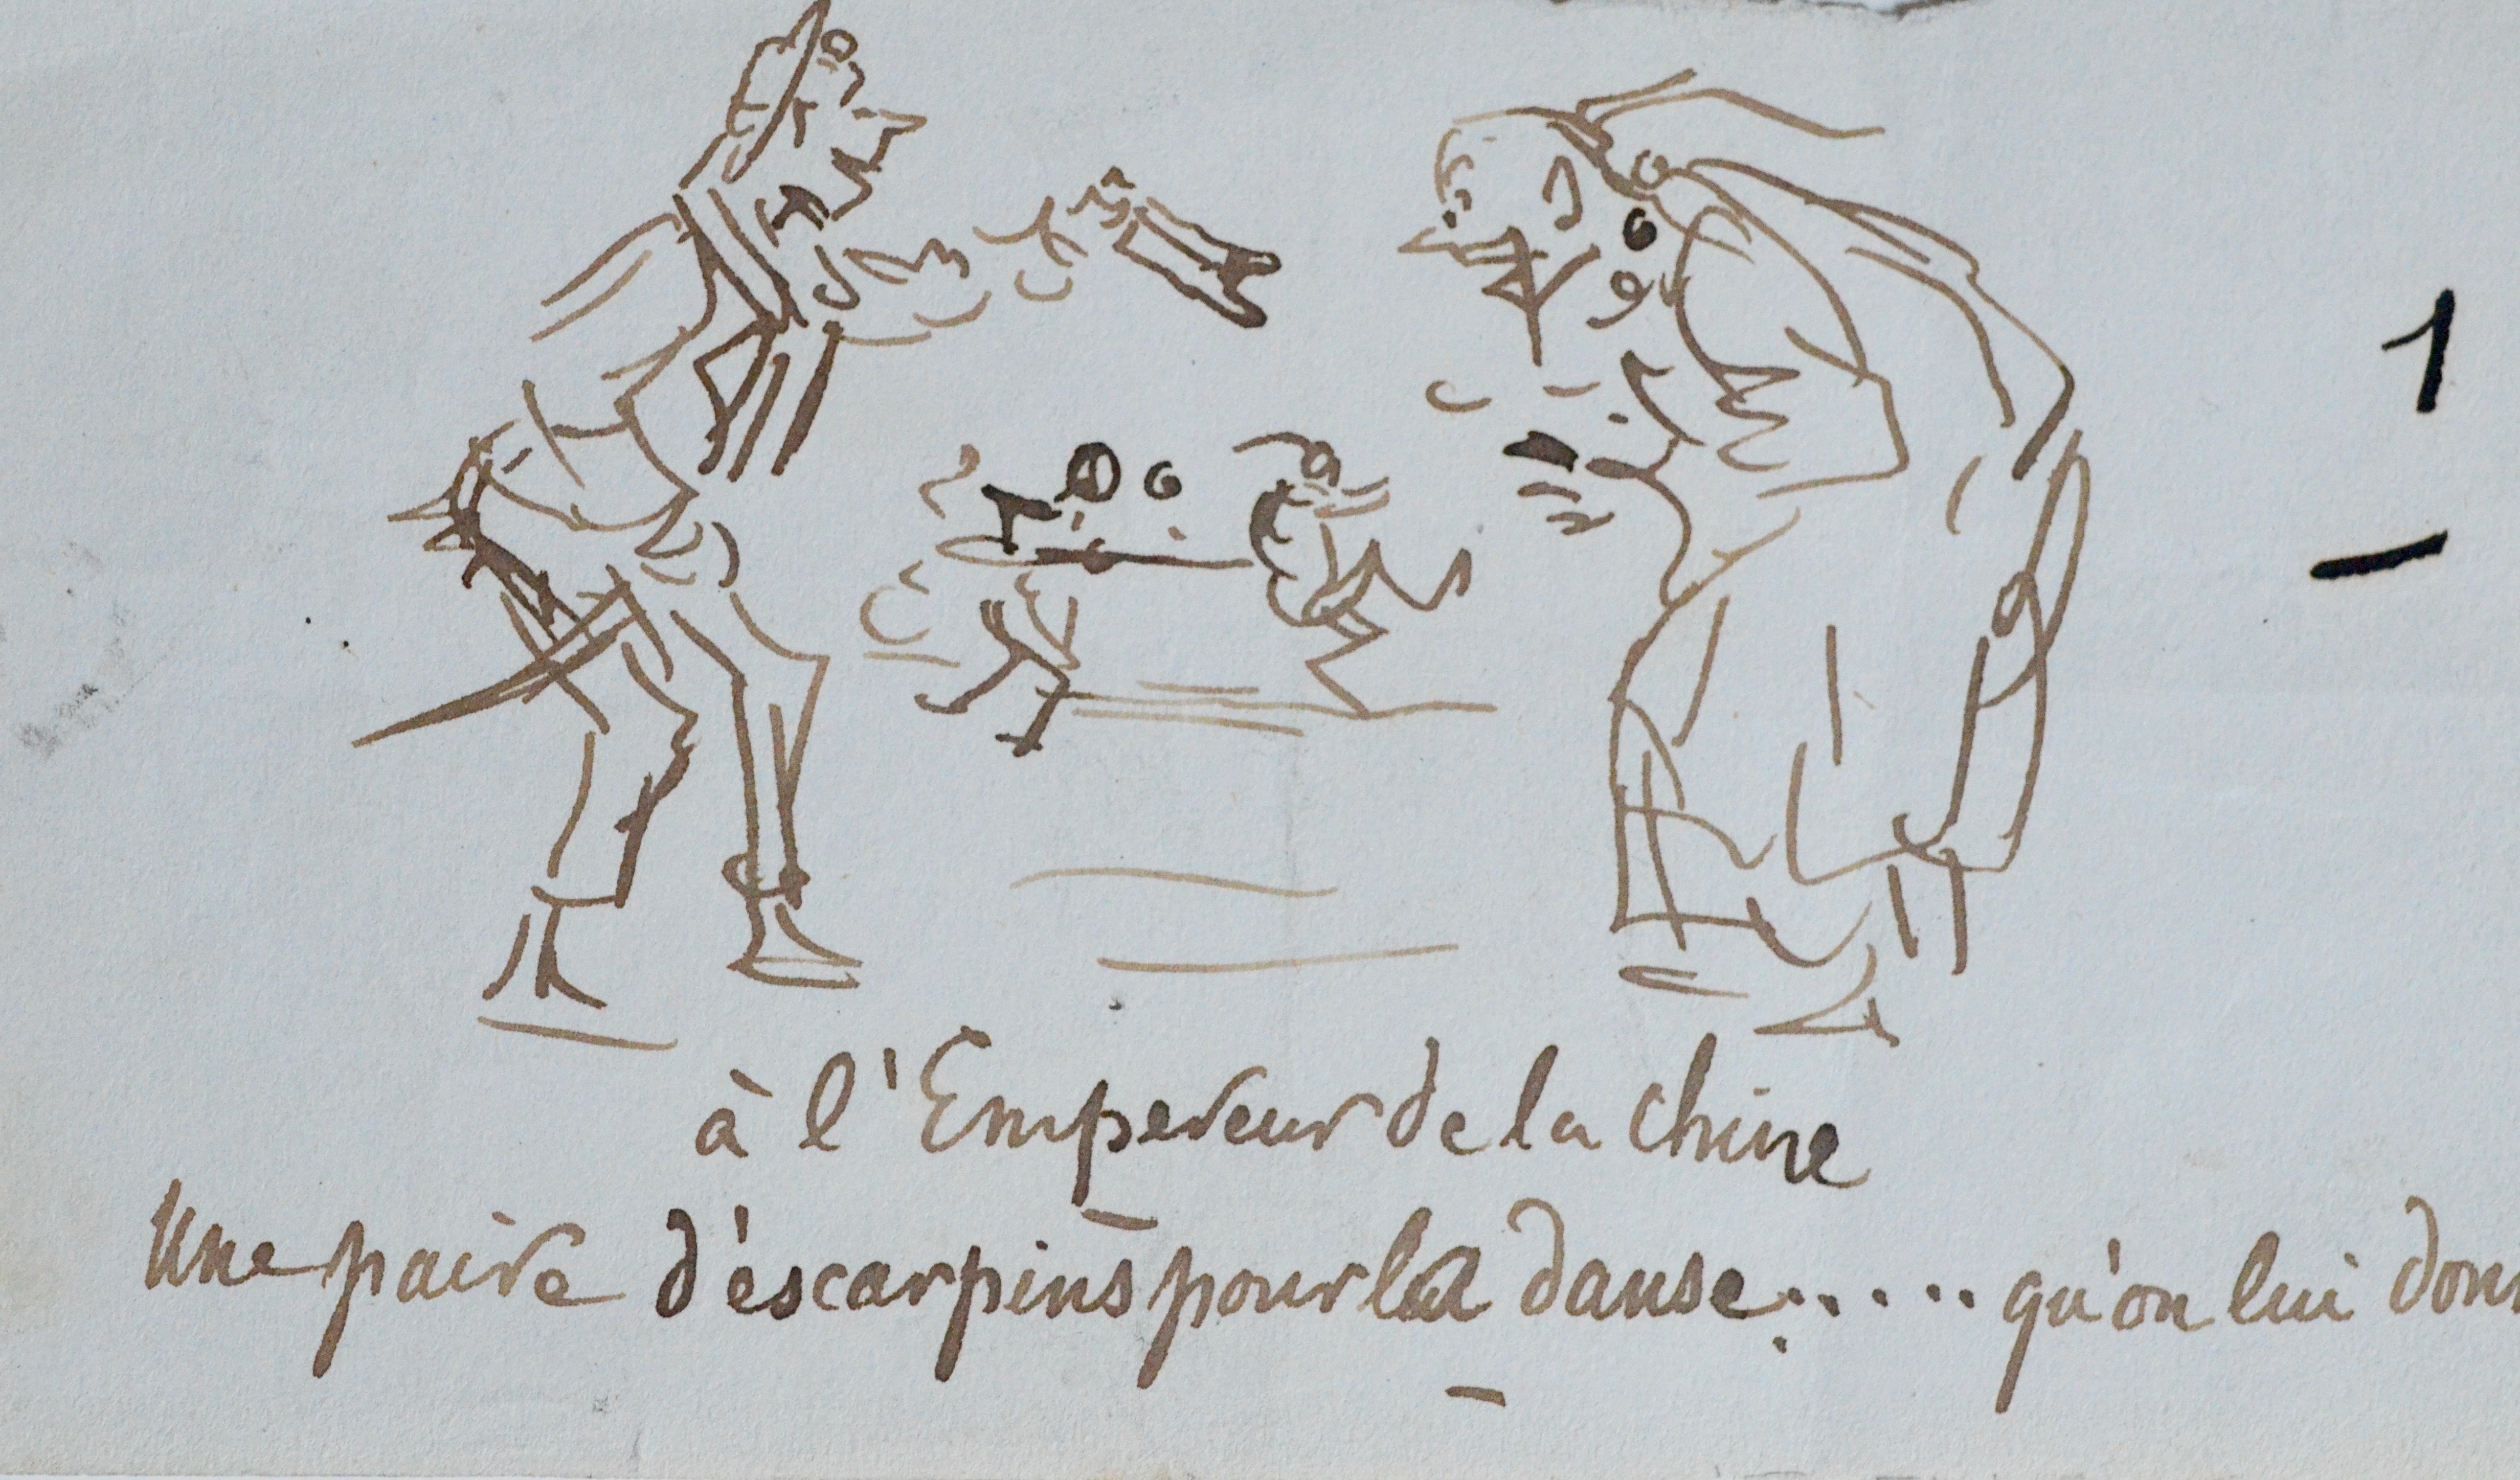 1
à l'Empereur de la Chine
Une paire d'éscarpins pour la danse..... qu'on lui donn